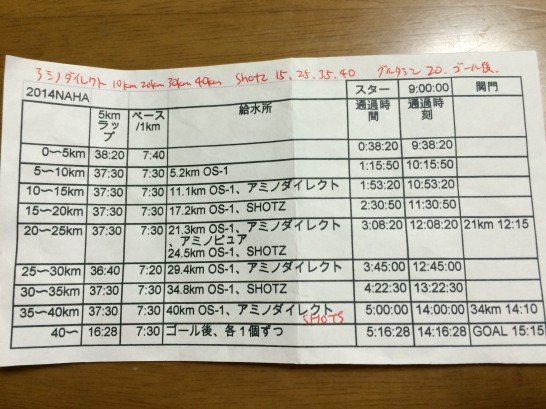 アミノダイレクト 10km 20km 30km 40km Shotz 15、25.35.40 グルタミン 20.ゴール後、
2014NAHA スター 9:00:00 関門
5kmラップ ペース/1km 給水所 通過時間 通過時刻
0〜5km 38:20 7:40 0:38:20 9:38:20
5〜10km 37:30 7:30 5.2km OS-1 1:15:50 10:15:50
10〜15km 37:30 7:30 11.1km OS-1、アミノダイレクト 1:53:20 10:53:20
15〜20km 37:30 7:30 17.2km OS-1、SHOTZ 2:30:50 11:30:50
20〜25km 37:30 7:30 21.3km OS-1、アミノダイレクト 3:08:20 12:08:20 21km 12:15
、アミノピュア
24.5km OS-1、SHOTZ
25〜30km 36:40 7:20 29.4km OS-1、アミノダイレクト 3:45:00 12:45:00
30〜35km 37:30 7:30 34.8km OS-1、SHOTZ 4:22:30 13:22:30
35〜40km 37:30 7:30 40km OS-1、アミノダイレクト 5:00:00 14:00:00 34km 14:10
SHOTS
40〜 16:28 7:30 ゴール後、各1個ずつ 5:16:28 14:16:28 GOAL 15:15